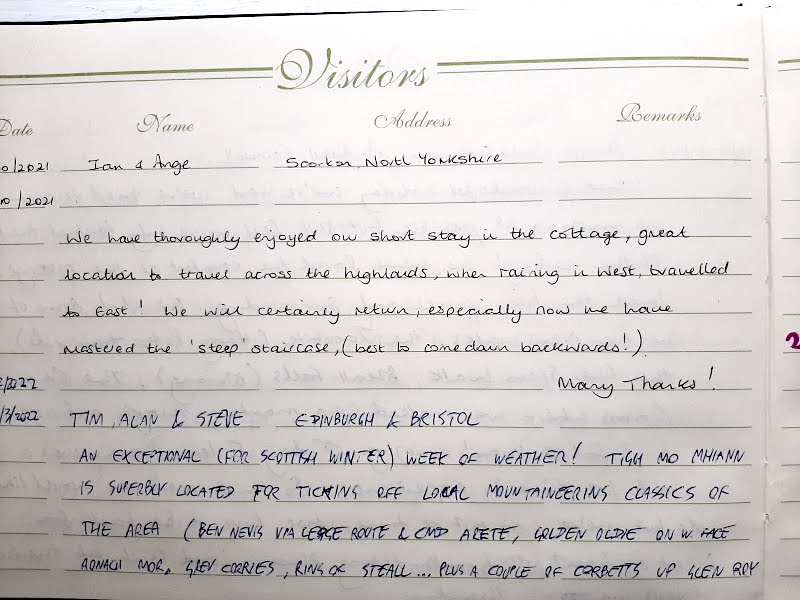 Visitors
Date Name Address Remarks
0/2021 Ian & Ange Scorton, North Yorkshire
10/2021
We have thoroughly enjoyed our short stay in the cottage, great
location to travel across the highlands, when raining in West, travelled
to East! We will certainly return, especially now we have
mastered the 'steep' staircase, (best to come down backwards!)
2/2022 Many Thanks!
/3/2022 TIM, ALAN & STEVE EDINBURGH & BRISTOL
AN EXCEPTIONAL (FOR SCOTTISH WINTER) WEEK OF WEATHER! TIGH MO MHIANN
IS SUPERBLY LOCATED FOR TICKING OFF LOCAL MOUNTAINEERING CLASSICS OF
THE AREA (BEN NEVIS VIA LEDGE ROUTE & CMD ARETE, GOLDEN OLDIE ON W. FACE
AONACH MOR, GREY CORRIES, RING OF STEALL... PLUS A COUPLE OF CORBETTS UP GLEN ROY
2